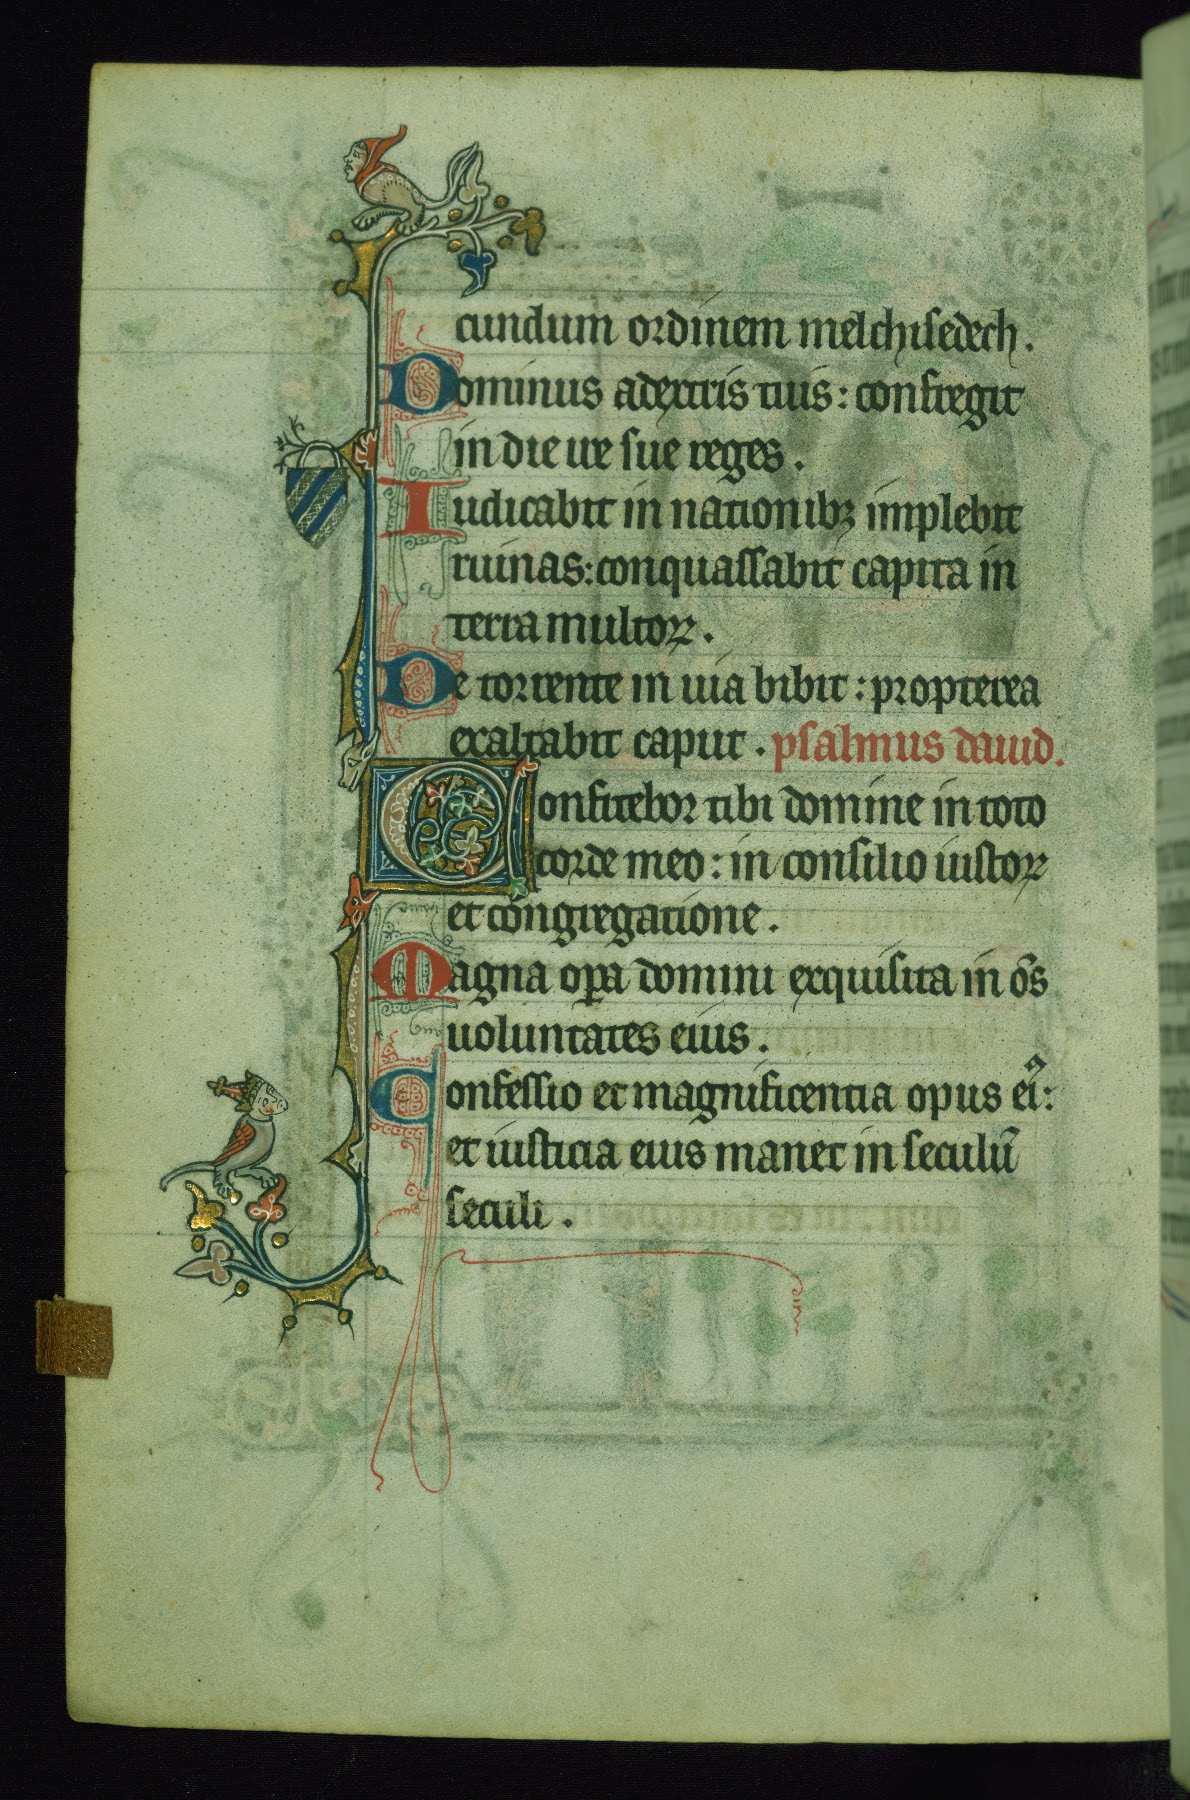 cundum ordinem melchisedech.
Dominus adextris tuis: confregit
in die ire sue reges.
Iudicabit in nationibꝫ implebit
ruinas: conquassabit capita in
terra multoꝝ.
De torrente in uia bibit: propterea
exaltabit caput. psalmus dauid.
Confitebor tibi domine in toto
corde meo: in consilio iustoꝝ
et congregatione.
Magna oꝑa domini exquisita in oēs
uoluntates eius.
Confessio et magnificentia opus eiꝰ:
et iusticia eius manet in seculū
seculi.